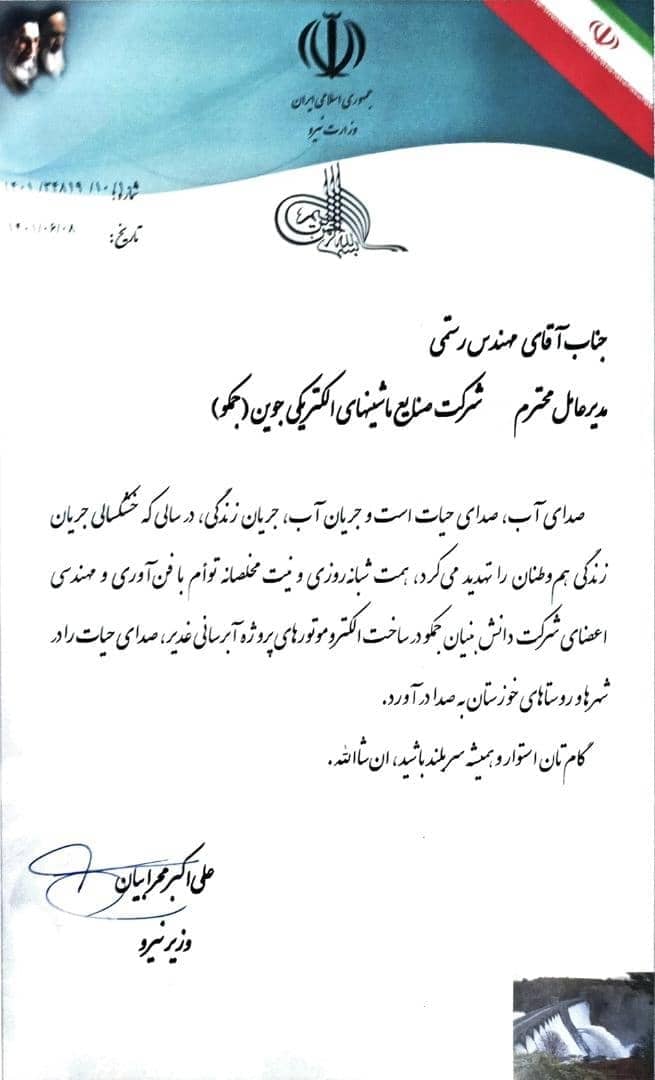 جمهوری اسلامی ایران
وزارت نیرو
شماره: ۱۴۰۱/۳۴۸۱۹/۱۰۰
تاریخ: ۱۴۰۱/۰۶/۰۸
بسم الله الرحمن الرحیم
جناب آقای مهندس رستمی
مدیرعامل محترم شرکت صنایع ماشینهای الکتریکی جوین (جمکو)
صدای آب، صدای حیات است و جریان آب، جریان زندگی، در سالی که خشکسالی جریان
زندگی هم‌وطنان را تهدید می‌کرد، همت شبانه‌روزی و نیت مخلصانه توأم با فن‌آوری و مهندسی
اعضای شرکت دانش بنیان جمکو در ساخت الکتروموتورهای پروژه آبرسانی غدیر، صدای حیات را در
شهرها و روستاهای خوزستان به صدا درآورد.
گام تان استوار و همیشه سربلند باشید، ان شاالله.
علی اکبر محرابیان
وزیر نیرو